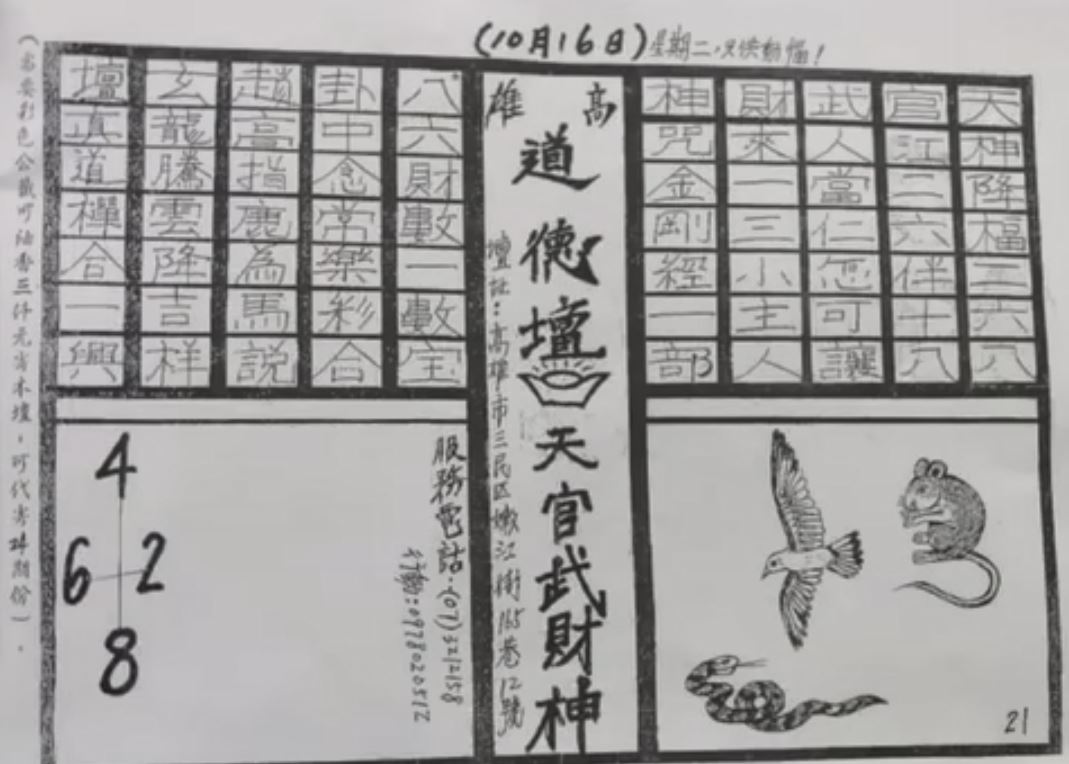 (10月16日)星期二，只供動腦！
高雄
道德壇
天官武財神
壇址：高雄市三民區嫩江街165巷12號
天神降福三六八
官江二六伴十八
武人當仁怎可讓
財來一三小主人
神咒金剛經一部
八六財數一數宝
卦中念常樂彩合
趙高指鹿為馬説
玄龍騰雲降吉祥
壇真道禪合一興
服務電話：(07)3212158
行動：0978020512
4
6 2
8
21